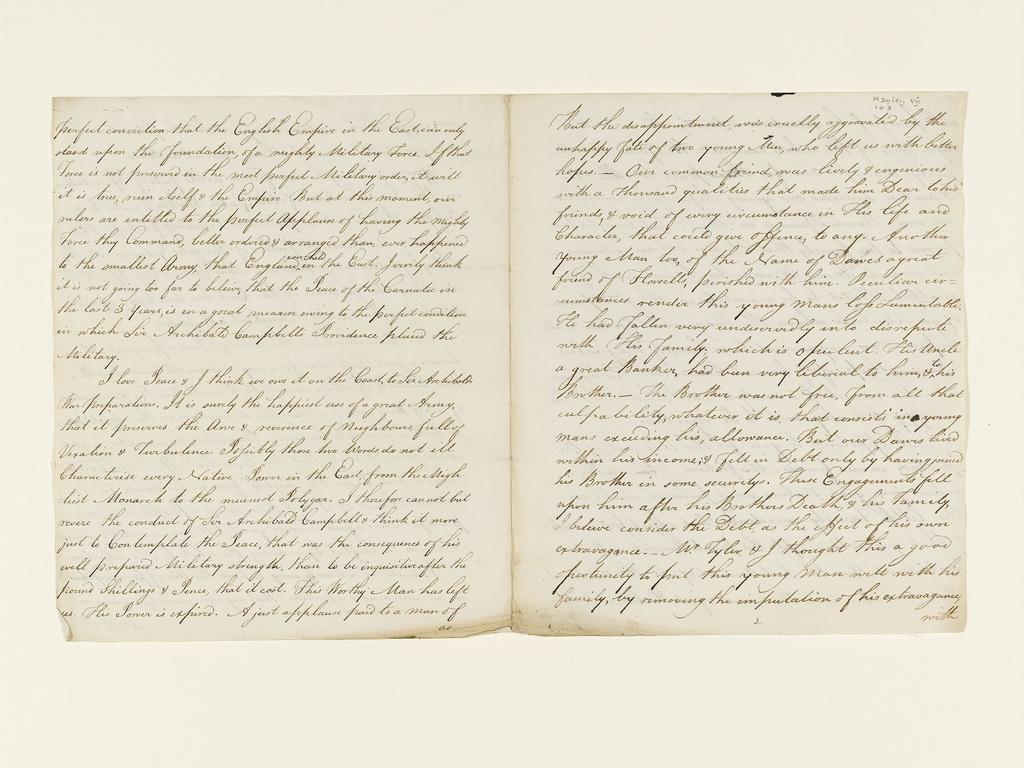 perfect conviction that the English Empire in the East, can only
stand upon the Foundation, of a mighty Military Force. If that
Force is not preserved in the most perfect Military order, it will
it is true, ruin itself & the Empire. But at this moment, our
rulers are entitled to the perfect Applause of having the mighty
Force they Command, better ordered & arranged than, ever happened
to the smallest Army that England, in the East. I verily think
it is not going too far to beleive, that the Peace of the Carnatic in
the last 3 years, is in a great measure owing to the perfect condition
in which Sir Archibald Campbells Providence placed the
Military.
I love Peace & I think we owe it on the Coast, to Sir Archibalds
War preparation. It is surely the happiest use of a great Army,
that it preserves the Awe & reverence of Neighbours, full of
Vexation & Turbulence. Possibly those two Words do not ill
Characterise every Native Power in the East, from the Migh
tiest Monarch to the meanest Polygar. I therefor cannot but
revere the conduct of Sir Archibald Campbell & think it more
just to Contemplate the Peace, that was the consequence of his
well prepared Military strength, than to be inquisitive after the
pound Shillings & Pence, that it cost. This Worthy Man has left
us. His Power is expired. A just applause paid to a man of
as
Hayley VIII
103
But the disappointment, was cruelly aggravated by the
unhappy fate of two young Men, who left us with better
hopes. — Our common friend, was lively & engenious
with a thousand qualities that made him Dear to his
friends, & void of every circumstance in His life and
Character, that could give offence, to any. Another
young Man too, of the Name of Dawes a great
friend of Howells, perished with him. Peculiar cir=
cumstances render this young mans loss Lamentable.
He had fallen very undeservedly into disrepute
with His Family, which is opulent. His Uncle
a great Banker, had been very liberial to him, & to his
Brother. — The Brother was not free, from all that
culpability, whatever it is, that consists in a young
mans exceeding his, allowance. But our Dawes lived
within his income; & fell in Debt only by having joined
his Brother in some securitys. These Engagements fell
upon him after his Brothers Death, & his family,
I beleive consider the Debt, as the effect of his own
extravagance. — Mr Tyler, & I thought this a good
opertunity to put this young Man well with his
family, by removing the imputation of his extravagance,
2
with